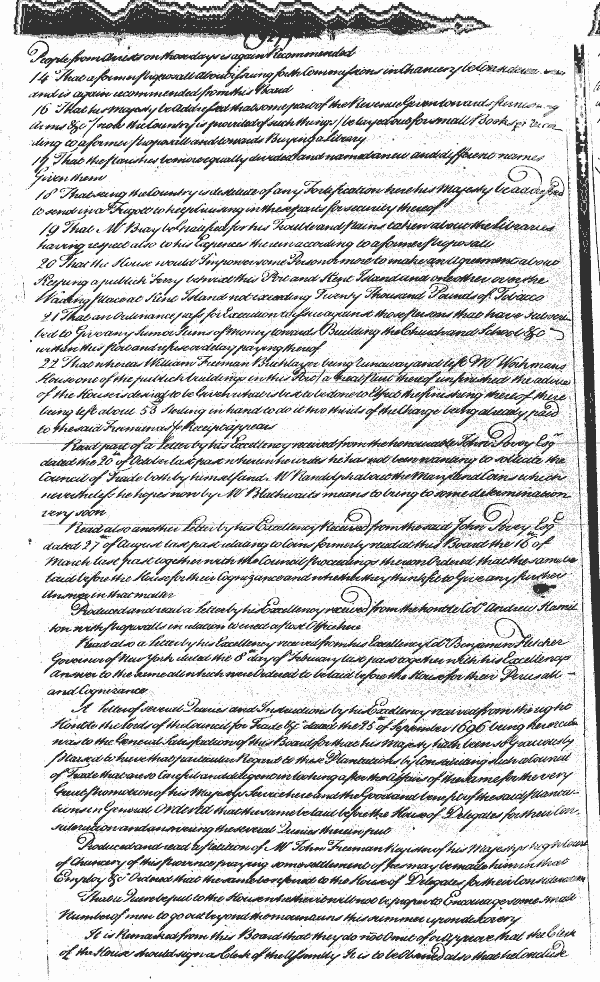 People from Arrests on those days is again Recommended
14 That a former proposall about issuing forth Commissions in Chancery be Considered
and is again recommended from this Board
16 That his Majesty be addressed that some part of the Revenue Given toward furnishing
Arms &c now the Country is provided of such things be layed out for small Books
ding to a former proposall and towards Buying a Library
17 That the parishes be more equally divided and named anew and different names
Given them
18 That seeing the Country is destitute of any Fortification here his Majesty be addressed
to send in a Frigott to help cruising in these parts for security thereof
19 That Mr Bray be Gratifyed for his Trouble and pains taken about the Libraries
having respect also to his Expences therein according to a former proposall
20 That the House would Impower some Person or more to make an agreement about
Keeping a publick Ferry betwixt this Port and Kent Island and another over the
Wading place at Kent Island not exceeding Twenty Thousand Pounds of Tobacco
21 That an Ordinance pass for Execution to issue against those persons that have subscri
bed to Give any Sume or Sums of money toward Building the Church and School &c
within this port and refuse or delay paying thereof
22 That whereas William Freeman Bricklayer being runaway and left Mr Workmans
House one of the publick buildings in this Port a Great part thereof unfinished the advice
of the House is desired to be Given what is best to be done to Effect the finishing thereof there
being left about 53 Sterling in hand to do it two thirds of the Charge being already paid
to the said Freeman as per Receipt appears
Read part of a Letter by his Excellency received from the honourable John Povey Esqr
dated the 20th of October last past wherein he writes he has not been wanting to solicite the
Council of Trade both by himself and Mr Randolph about the Maryland Coins which
nevertheless he hopes now by Mr Blathwaits means to bring to some determination
very soon
Read also another Letter by his Excellency Received from the said John Povey Esqr
dated 27th of August last past relating to Coins formerly read at this Board the 16th of
March last past together with the Council proceedings thereon Ordered that the same be
laid before the House for their Cognizance and whether they think fit to Give any further
Answer in that matter
Produced and read a Letter by his Excellency received from the honble Coll Andrew Hamil
ton with proposalls in relation to erect a post Office here
Read also a Letter by his Excellency received from his Excellency Coll Benjamin Fletcher
Governor of New York dated the 8th day of February last past together with his Excellencys
answer to the same all which were Ordered to be laid before the House for their Perusall
and Cognizance
A letter of several Queries and Instructions by his Excellency received from the right
Honble the lords of the Council for Trade &c dated the 25th of September 1696 being here read
was to the General Satisfaction of this Board for that his Majesty hath been so Graciously
pleased to have that particular Regard to these Plantations by Constituting such a Council
of Trade that are so Careful and diligent in looking after the Affairs of the same for the very
Great promotion of his Majestys Service here and the Good and benefit of the said planta
tions in General Ordered that the same be laid before the House of Delegates for their Con
sideration and answering the several Queries therein put
Produced and read a Petition of Mr John Freeman Register of his Majestys high Court
of Chancery of this province praying some settlement of fees may be made him in that
Employ &c Ordered that the same be referred to the House of Delegates for their Consideration
That a Quere be put to the House whether it will not be proper to Encourage some small
Number of men to go out beyond the mountains this summer upon discovery
It is Remarked from this Board that they do not Omit of or Approve that the Clerk
of the House should sign as Clerk of the Assembly It is to be Observed also that the Conclude